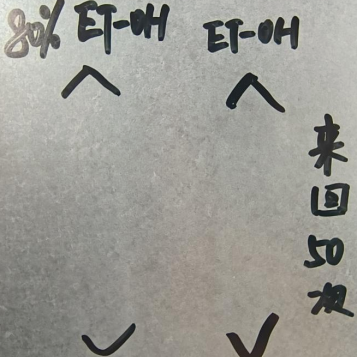 80% ET-OH
ET-OH
来回50次